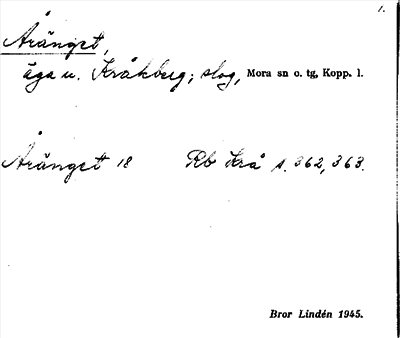 1.
Åränget,
äga u. Kråkberg; slog, Mora sn o. tg, Kopp. l.
Åränget 18 Rb Krå s. 362, 363.
Bror Lindén 1945.